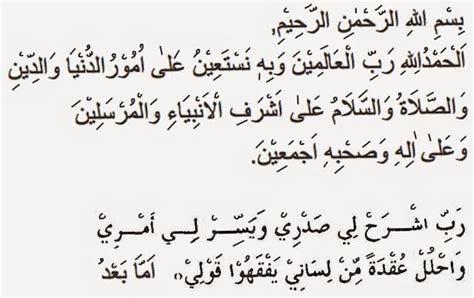 بِسْمِ اللهِ الرَّحْمٰنِ الرَّحِيْمِ,
اَلْحَمْدُلِلهِ رَبِّ الْعَالَمِيْنَ وَبِهِ نَسْتَعِيْنُ عَلٰى اُمُوْرِالدُّنْيَا وَالدِّيْنِ
وَالصَّلَاةُ وَالسَّلَامُ عَلٰى اَشْرَفِ الْاَنْبِيَاءِ وَالْمُرْسَلِيْنَ
وَعَلٰى اٰلِهِ وَصَحْبِهِ اَجْمَعِيْنَ.
رَبِّ اشْرَحْ لِي صَدْرِيْ وَيَسِّرْ لِي أَمْرِيْ
وَاحْلُلْ عُقْدَةً مِّنْ لِسَانِيْ يَفْقَهُوْا قَوْلِيْ، اَمَّا بَعْدُ